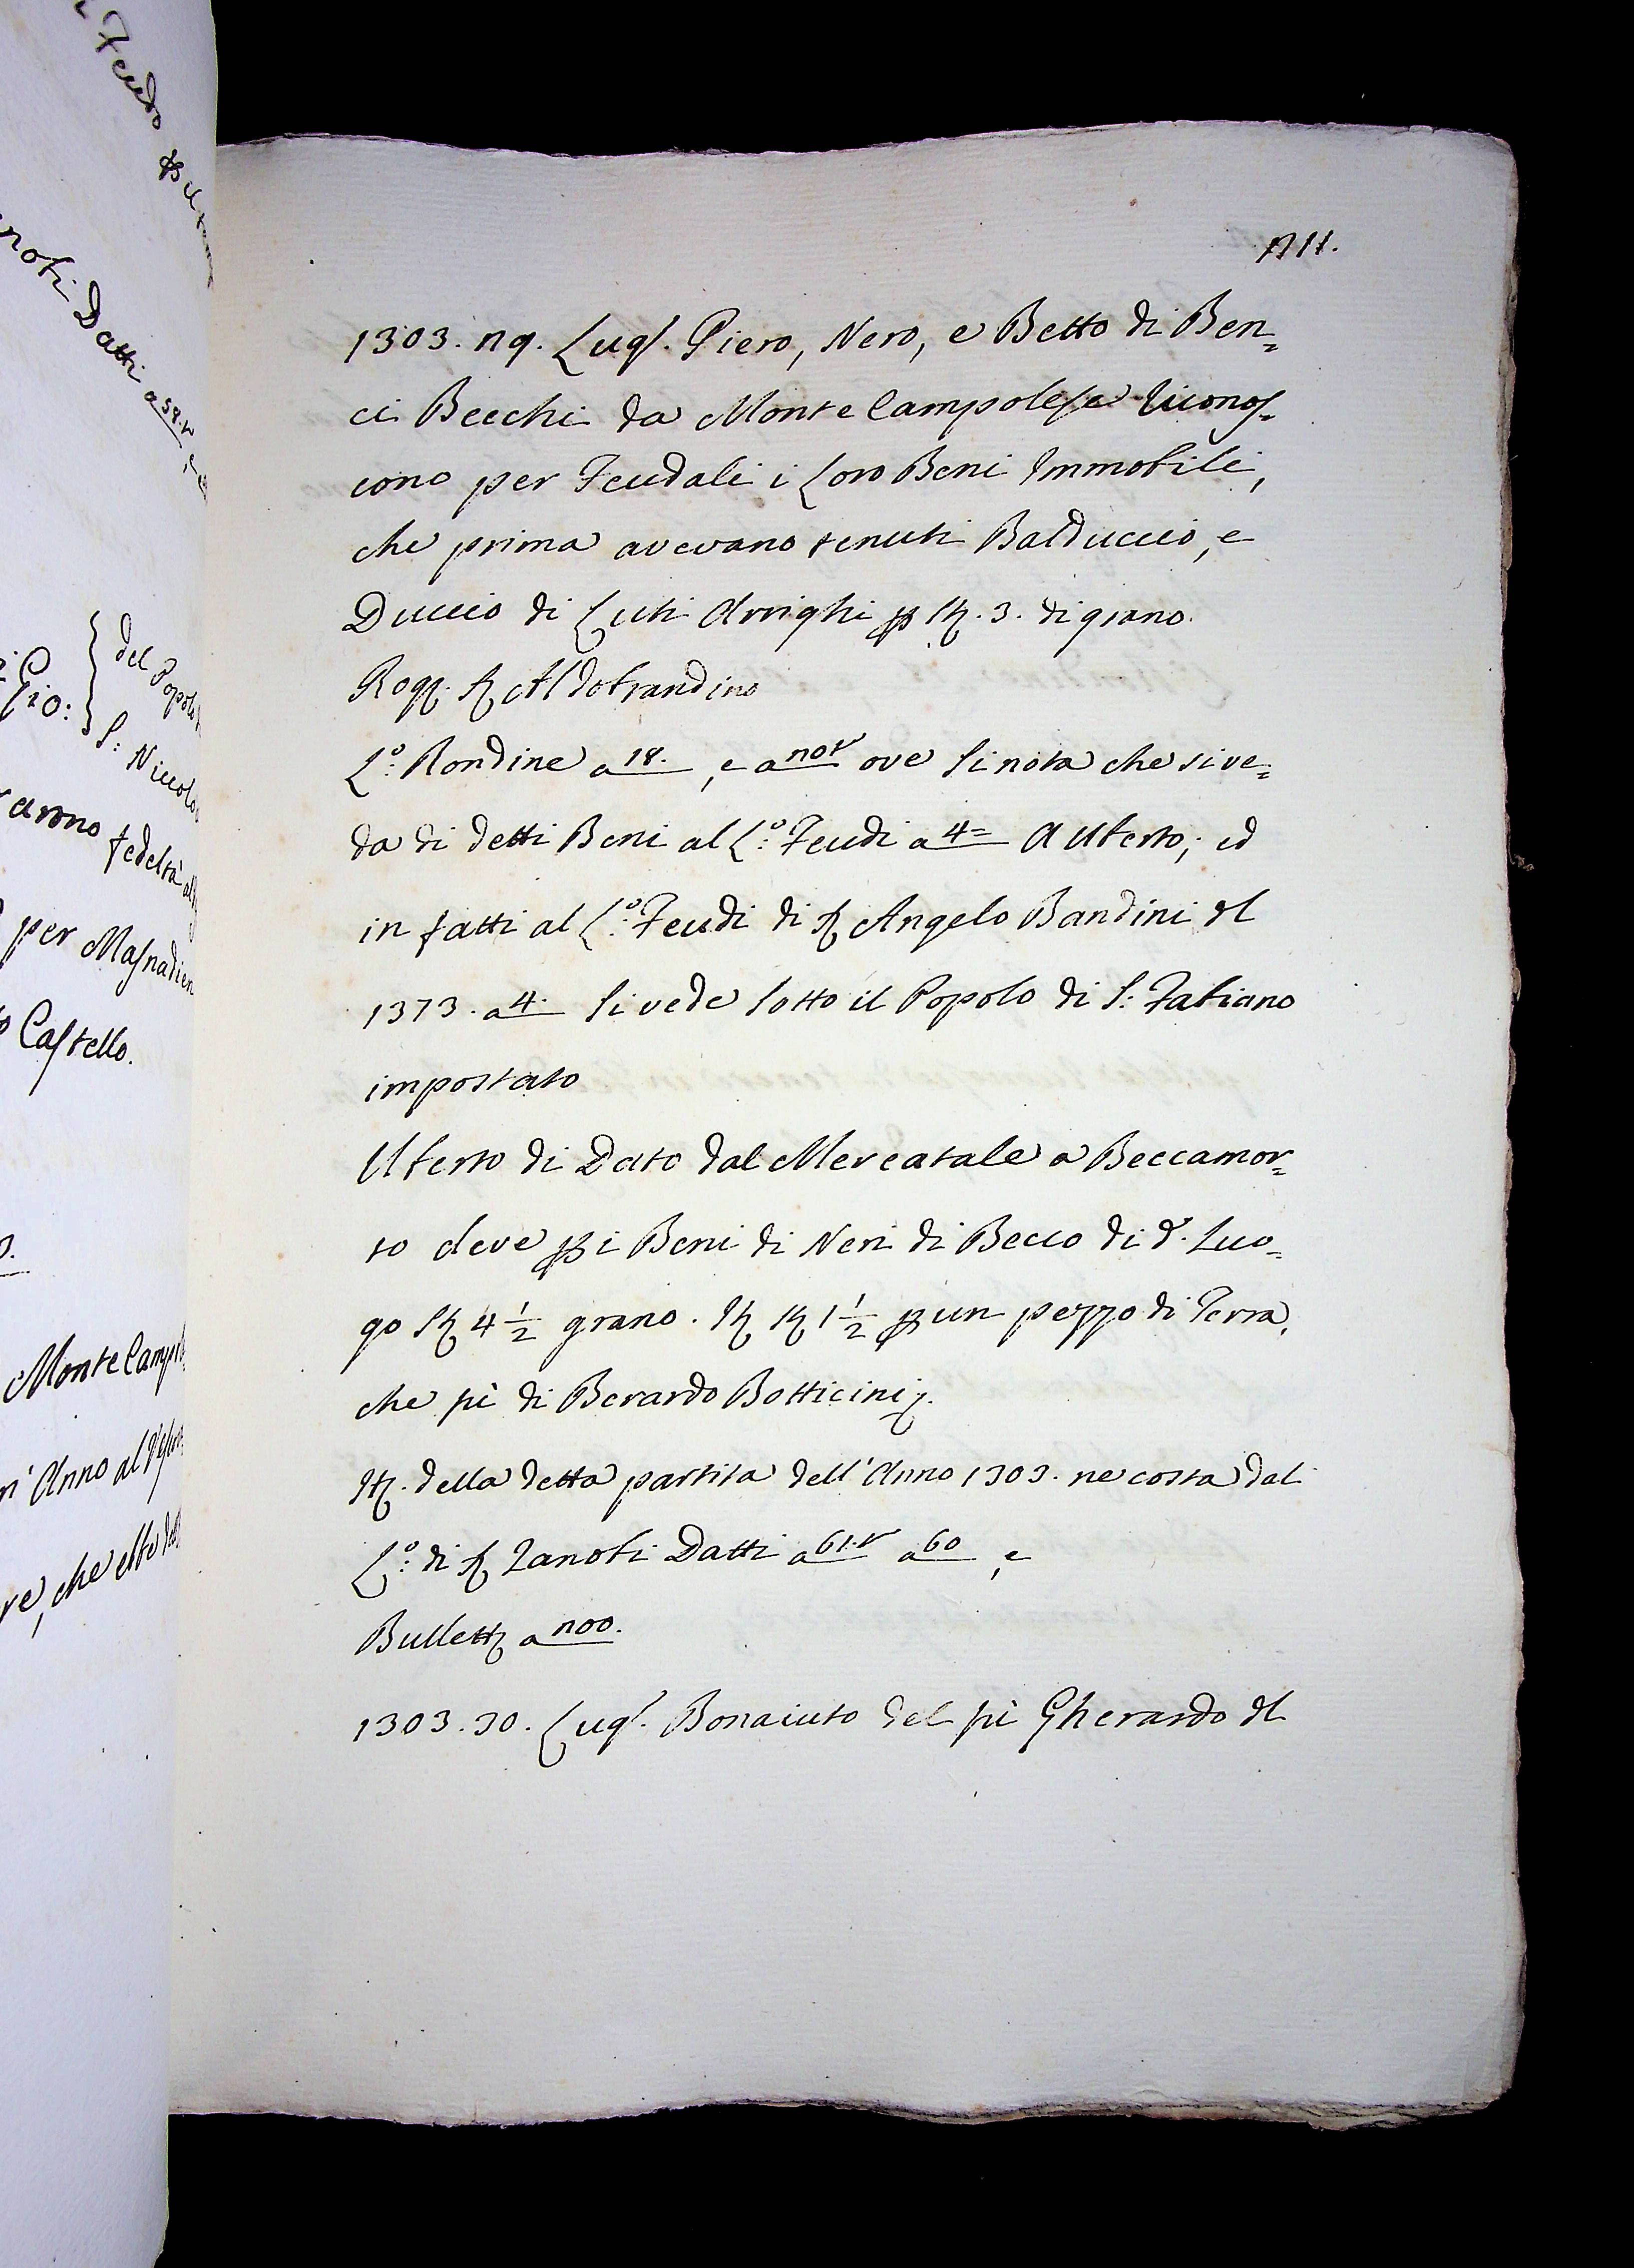 711.
1303. 29. Lugl. Piero, Nero, e Betto di Ben=
ci Becchi da Monte Campolese riconos=
cono per Feudali i Loro Beni Immobili,
che prima avevano tenuti Balduccio, e
Duccio di Luti Arrighi p 3. di grano.
Rog. Aldobrandino
L.º Rondine a 18. , e a ove si nota che si ve=
da di detti Beni al L.º Feudi a 4= a Uberto; ed
in fatti al L.º Feudi di S. Angelo Bandini il
1373. a 4. si vede sotto il Popolo di S: Fabiano
impostato
Uberto di Dato dal Mercatale a Beccamor=
to deve p i Beni di Neri di Becco di d.º Luo=
go St 4 1/2 grano. It St 1 1/2 p un pezzo di Terra,
che fù di Berardo Botticini
It. della detta partita dell'Anno 1303. ne costa dal
L.º di S Zanobi Datti a 61.v a 60 , e
Bullett a 200.
1303. 30. Lugl. Bonaiuto del fù Gherardo il
noti Datti a 58.v
Gio:
del Popolo
S: Niccolò
fedeltà
per Masnadieri
Castello.
Monte Camp
Anno al
che ebbe